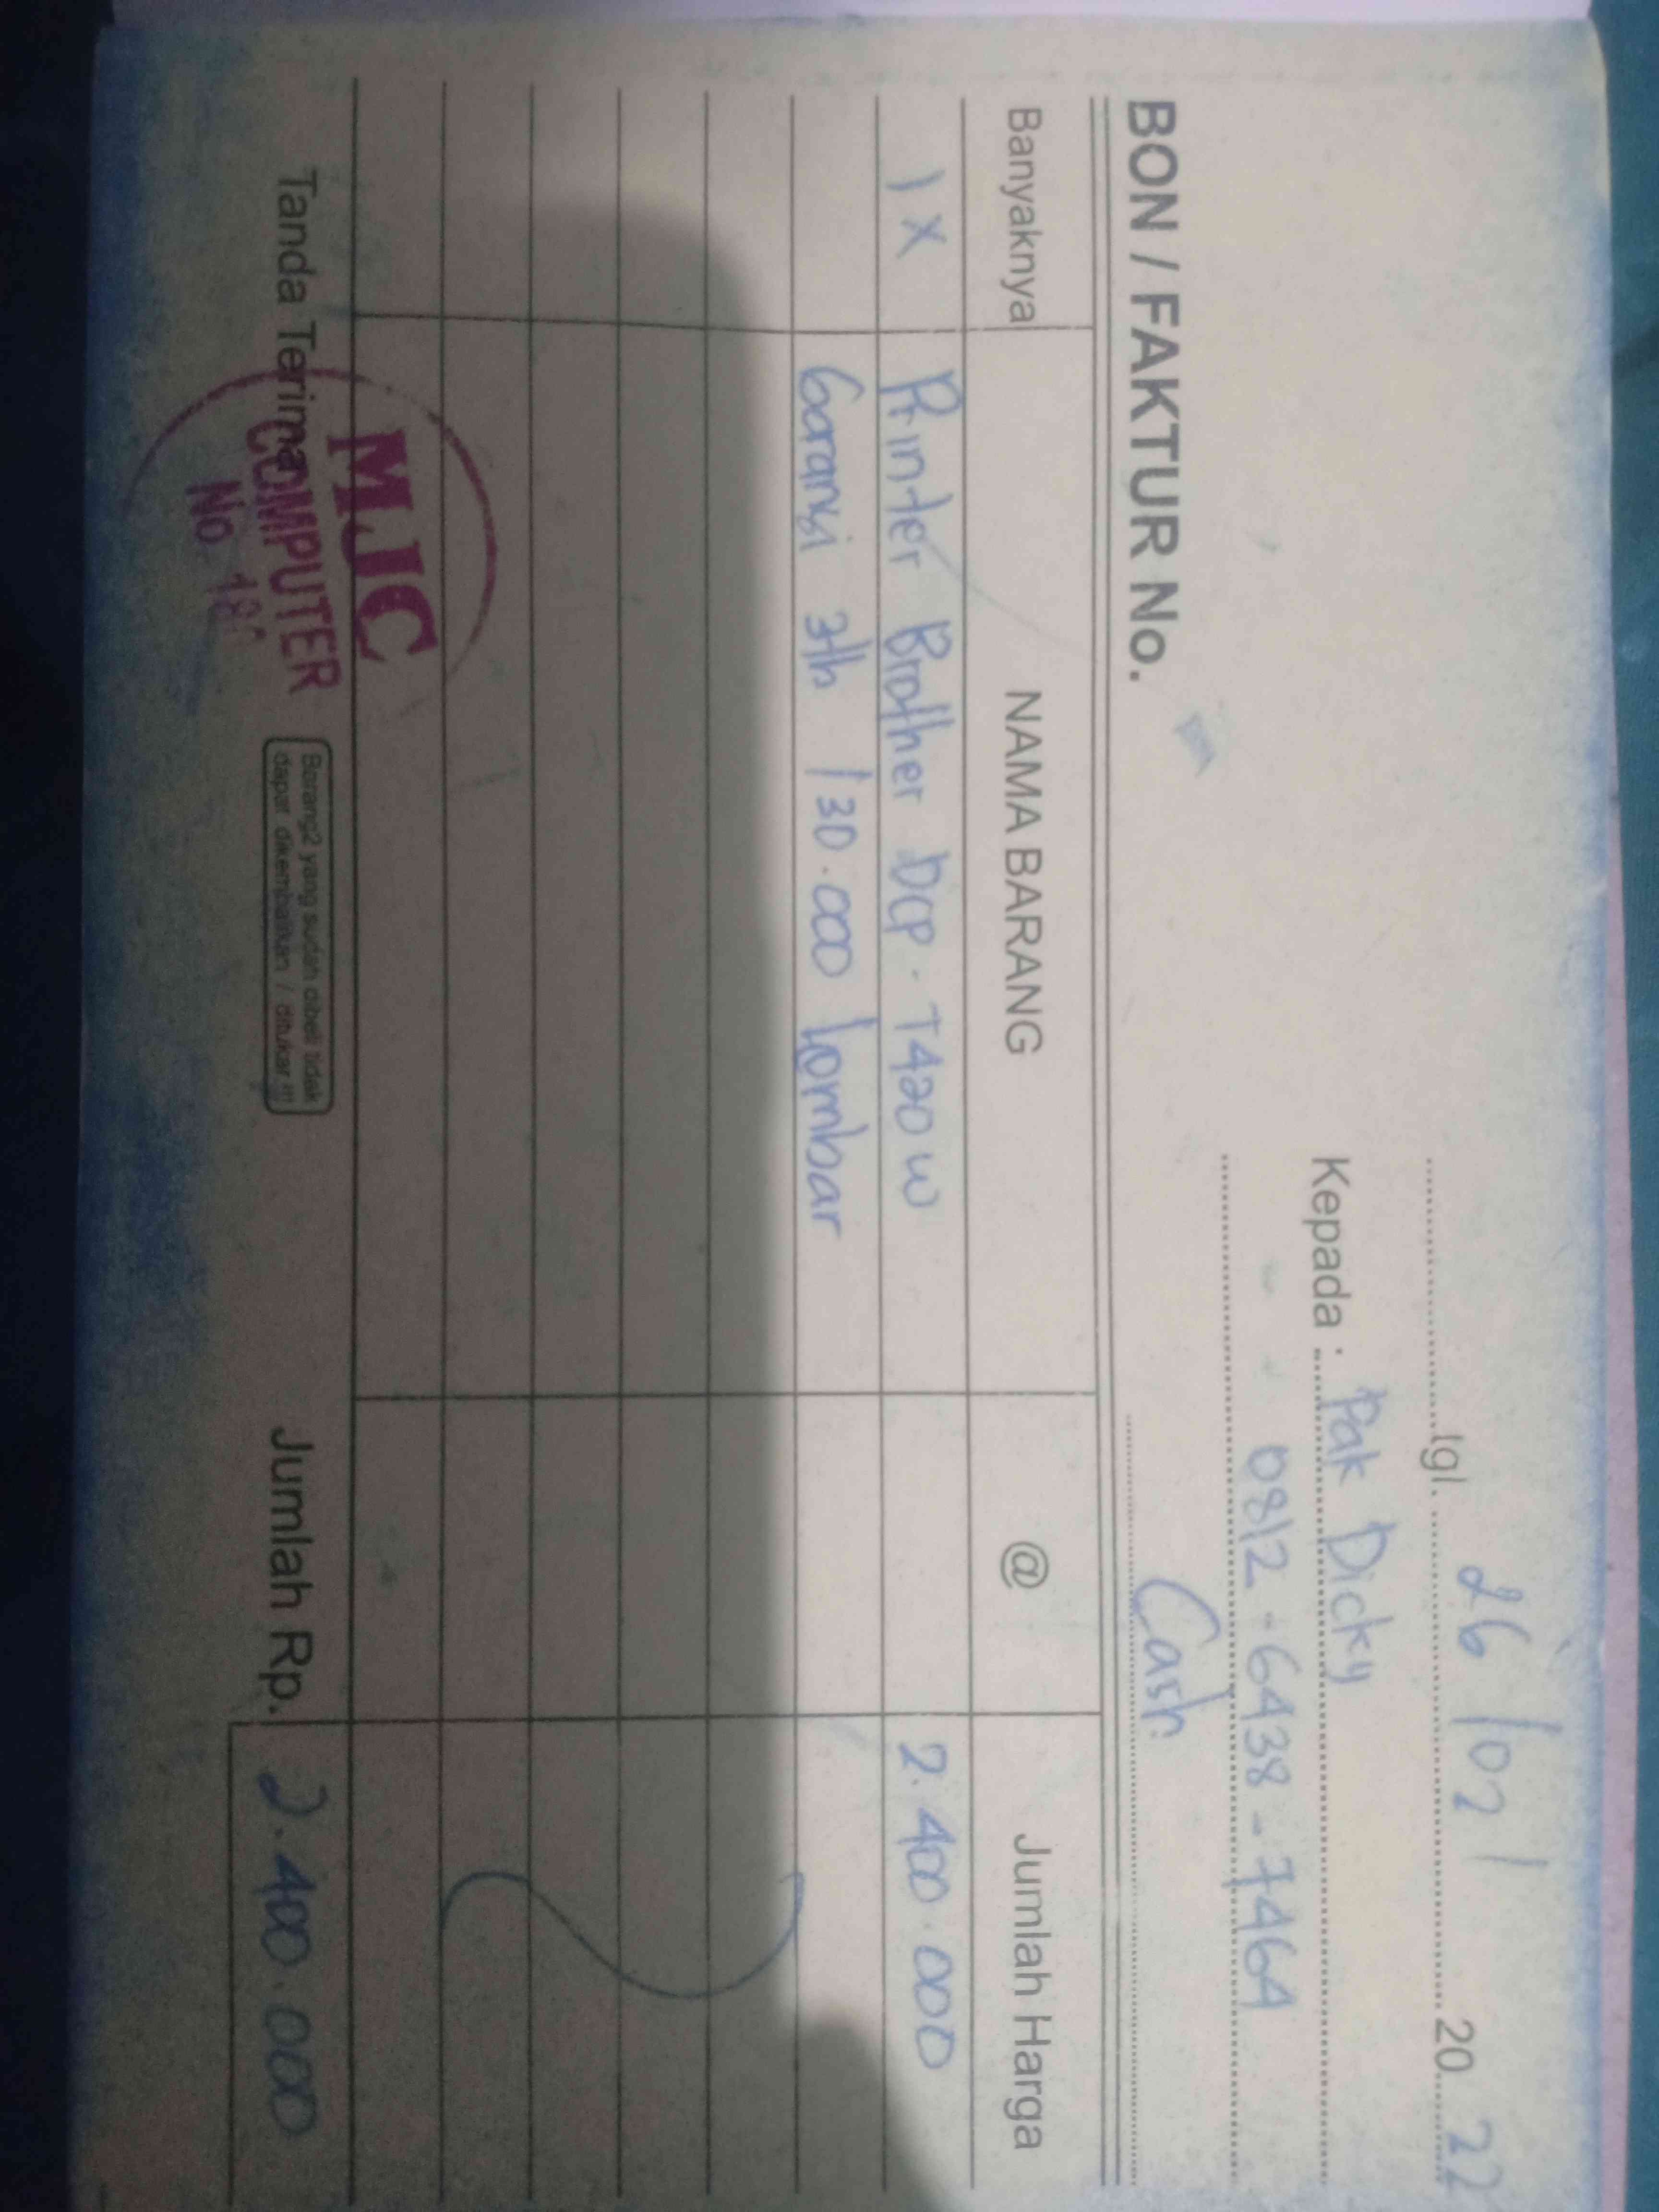 tgl. 26/02/ 20 22
Kepada : Pak Dicky
0812-6438-7464
BON / FAKTUR No. Cash
Banyaknya NAMA BARANG @ Jumlah Harga
1 X Printer Brother DCP-T420W 2.400.000
Garansi 3th / 30.000 lembar
Tanda Terima Jumlah Rp. 2.400.000
MJC
COMPUTER
No.
Barang2 yang sudah dibeli tidak
dapat dikembalikan / ditukar !!!